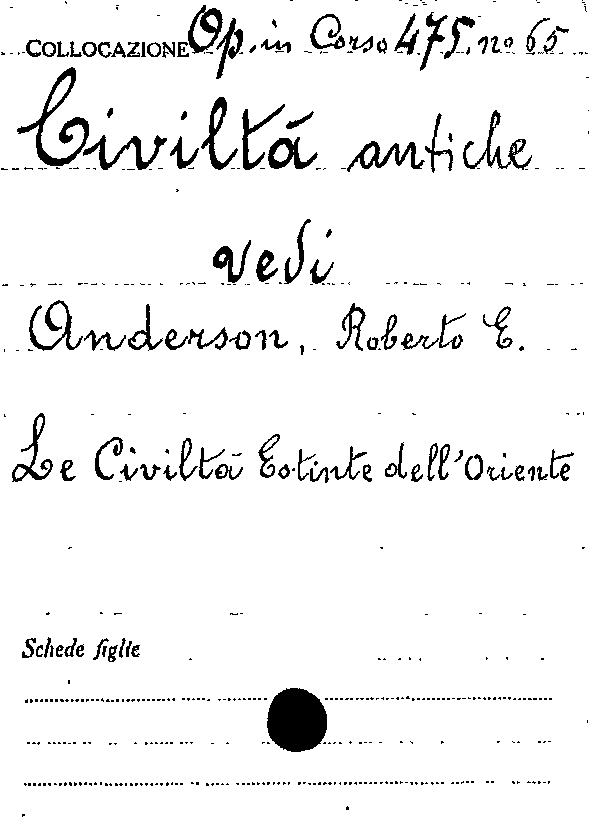 COLLOCAZIONE Op. in Corso 475. no 65
Civiltà antiche
vedi
Anderson, Roberto E.
Le Civiltà Estinte dell'Oriente
Schede figlie